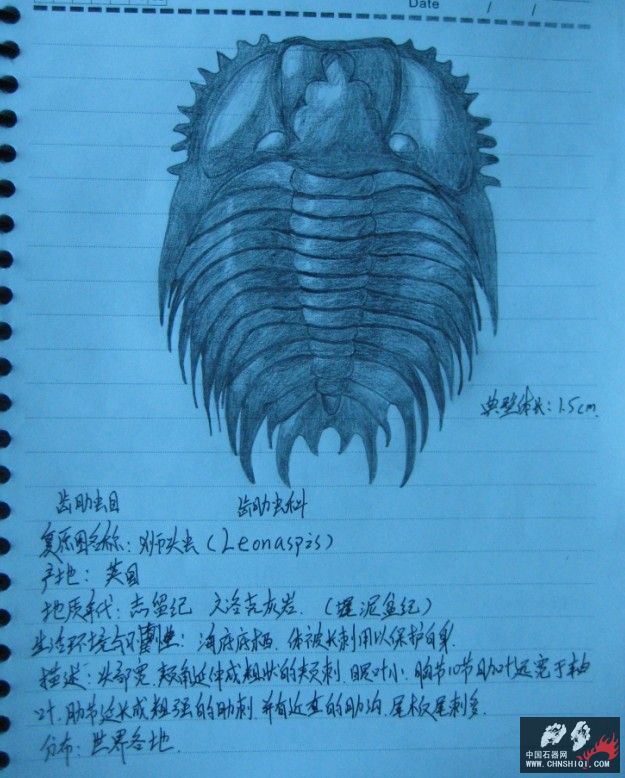 Date / /
典型体长：1.5cm
齿肋虫目 齿肋虫科
复原图名称：狮头虫（Leonaspis）
产地：英国
地质年代：志留纪 文洛克灰岩．（泥盆纪）
生活环境与习性：海底底栖．体被长刺用以保护自身
描述：头部宽．颊角延伸成粗壮的颊刺．眼叶小．胸节10节肋叶远宽于轴
叶．肋节延长成粗强的肋刺．并有近直的肋沟．尾板尾刺多．
分布：世界各地．
中国石器网
WWW.CHNSHIQI.COM